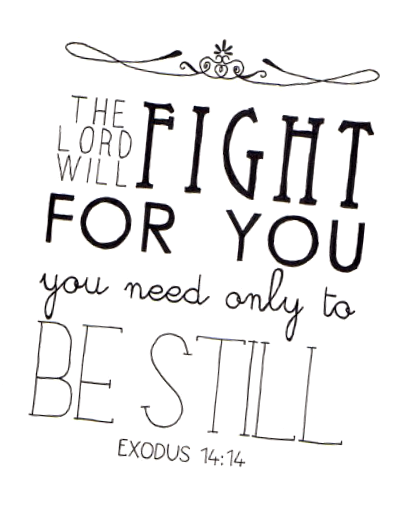 THE
LORD
WILL
FIGHT
FOR YOU
you need only to
BE STILL
EXODUS 14:14